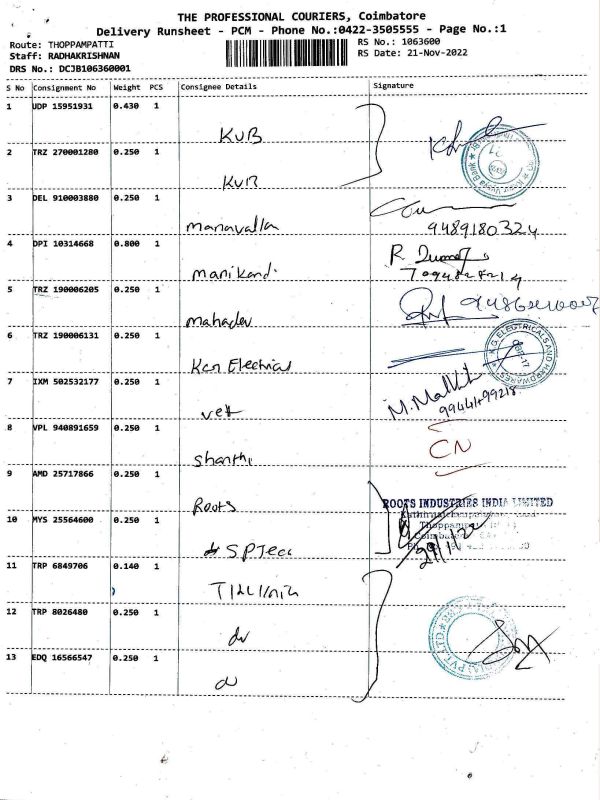 THE PROFESSIONAL COURIERS, Coimbatore
Delivery Runsheet - PCM - Phone No.:0422-3505555 - Page No.:1
Route: THOPPAMPATTI
RS No.: 1063600
Staff: RADHAKRISHNAN
RS Date: 21-Nov-2022
DRS No.: DCJB106360001
S No Consignment No Weight PCS Consignee Details Signature
1 UDP 15951931 0.430 1
KVB
2 TRZ 270001280 0.250 1
KVB
3 DEL 910003880 0.250 1
manavalla 9489180324
4 DPI 10314668 0.800 1
manikand
5 TRZ 190006205 0.250 1
mahadev
6 TRZ 190006131 0.250 1
Electrical
7 IXM 502532177 0.250 1
8 VPL 940891659 0.250 1
shanthi CN
9 AMD 25717866 0.250 1
Roots ROOTS INDUSTRIES INDIA LIMITED
10 MYS 25564600 0.250 1
11 TRP 6849706 0.140 1
12 TRP 8026480 0.250 1
13 EDQ 16566547 0.250 1